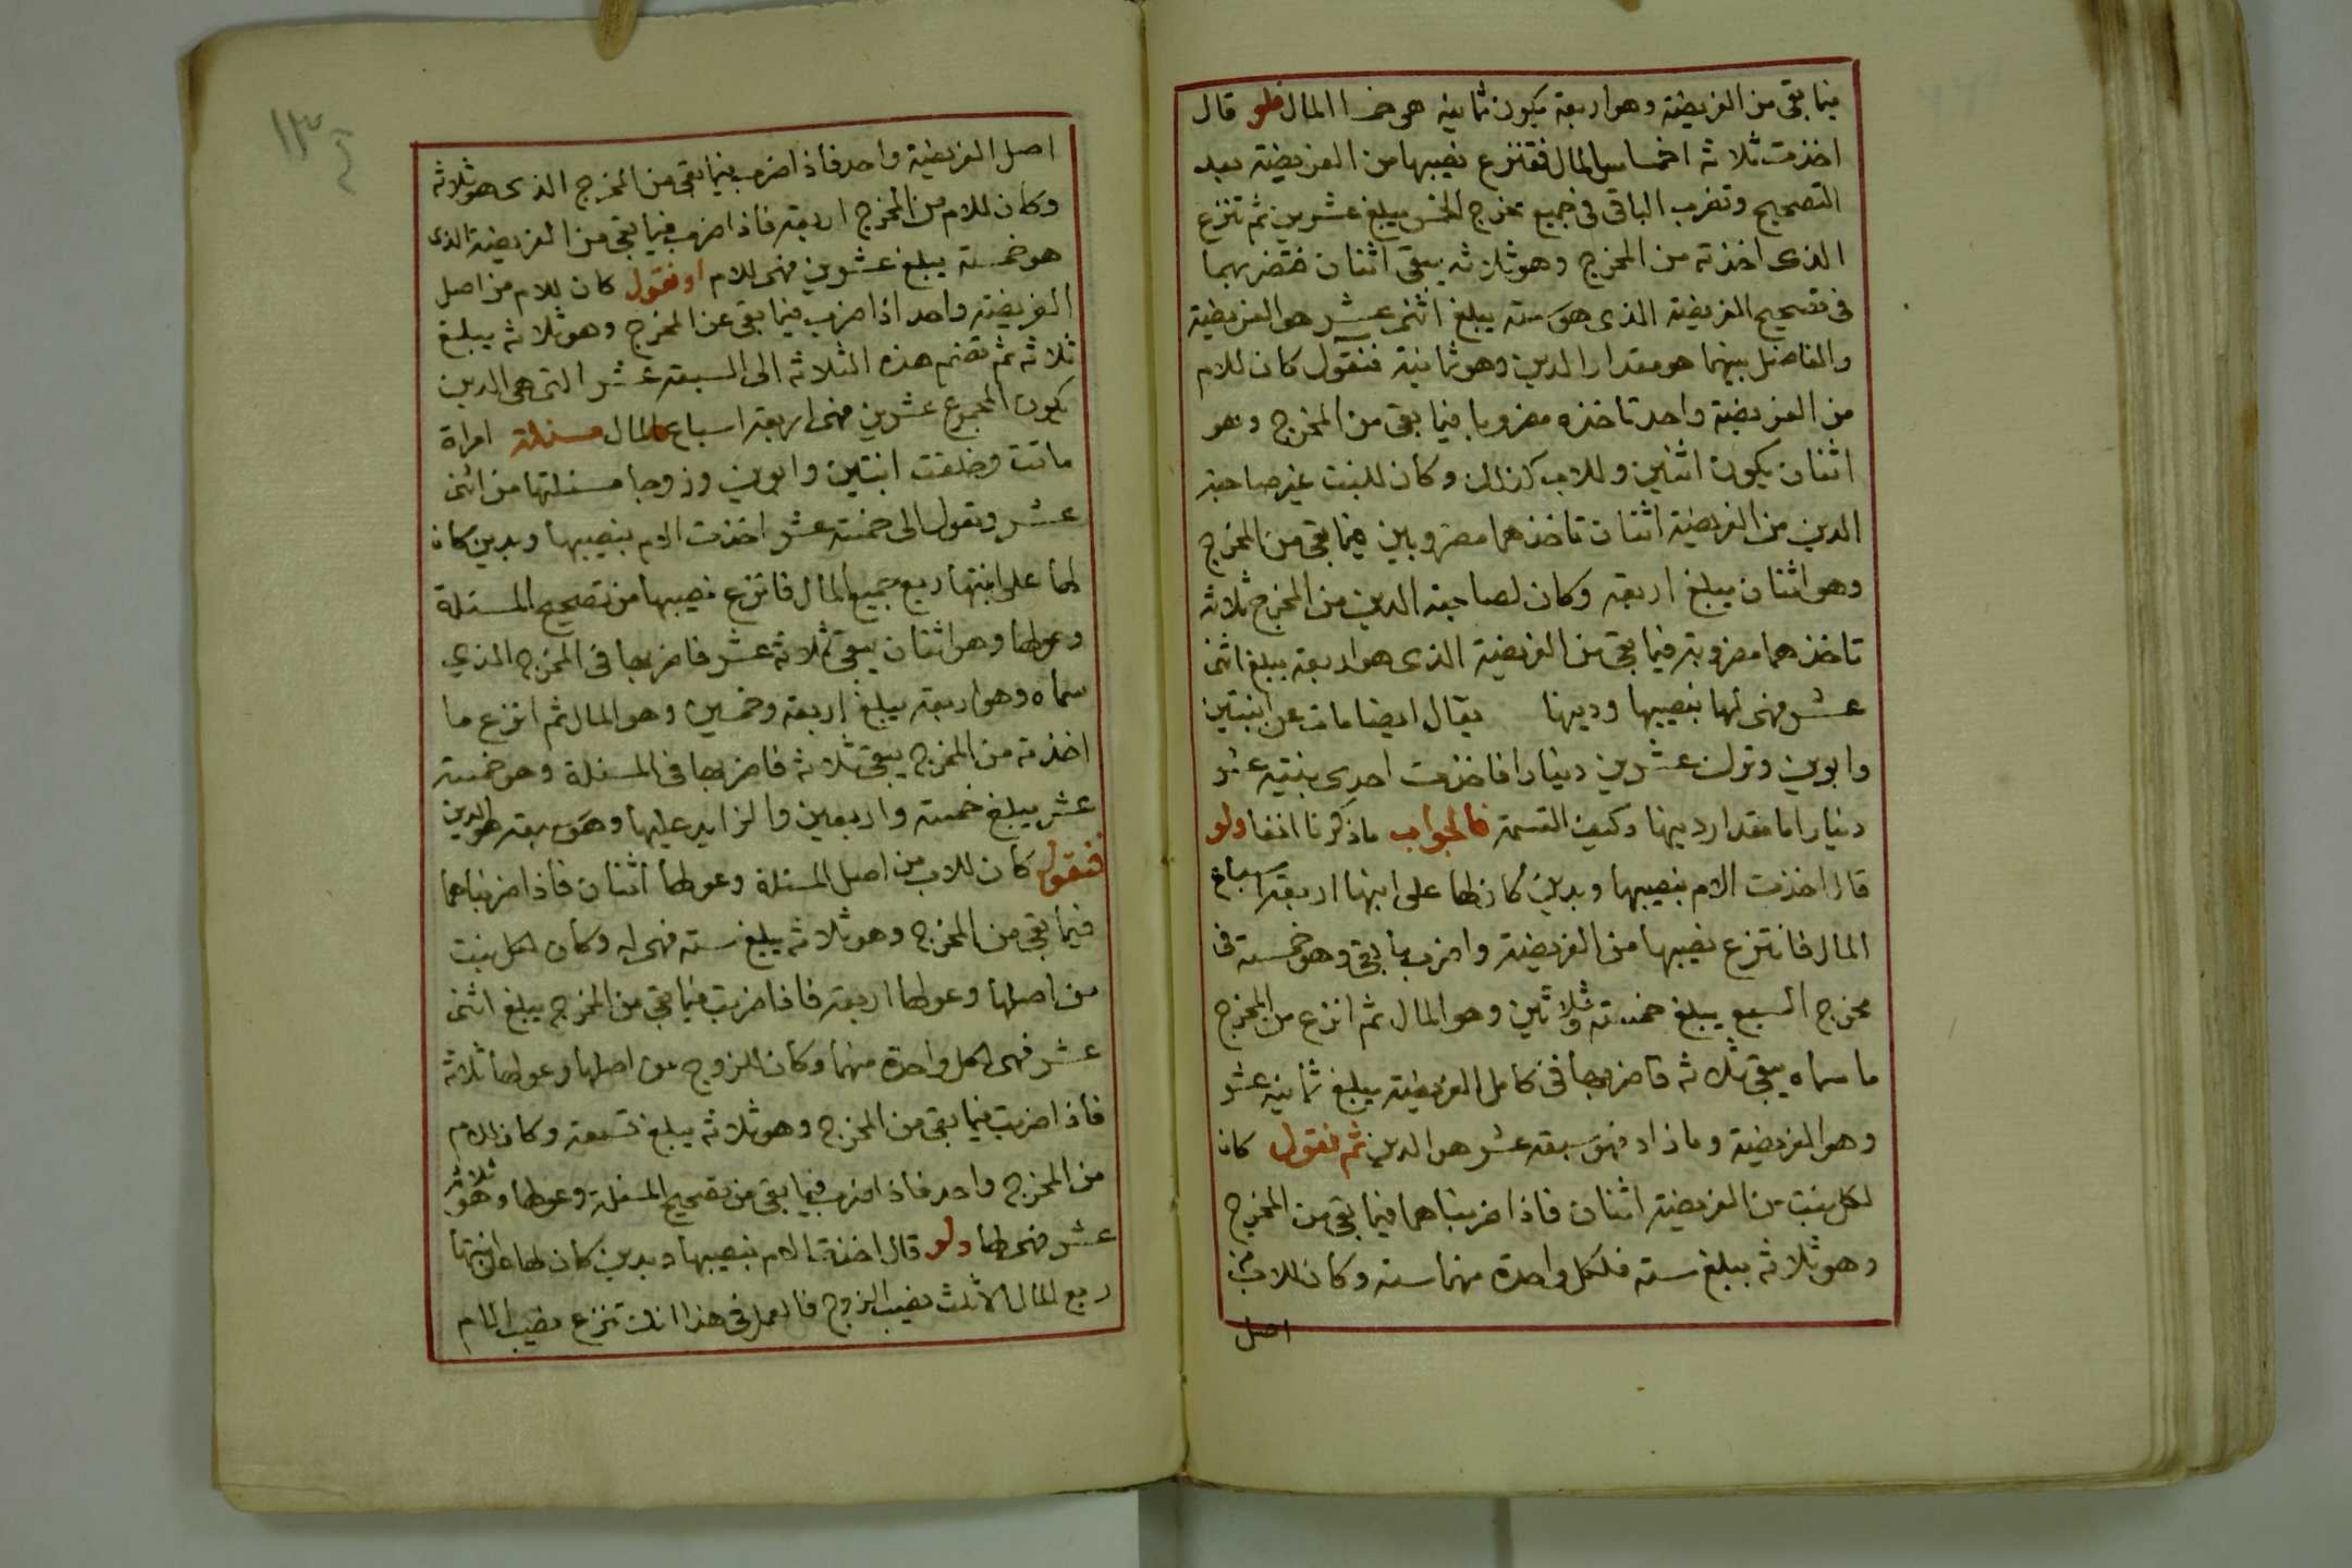 فيما بقى من الفريضة وهو اربعة يكون ثمانية هو خمسا المال فلو قال
اخذت ثلاثة اخماس المال فتنزع نصيبها من الفريضة بعد
التصحيح وتضرب الباقى فى جميع مخرج الخمس يبلغ عشرين ثم تنزع
الذى اخذته من المخرج وهو ثلاثة يبقى اثنان فتضربهما
فى تصحيح الفريضة الذى هو ستة يبلغ اثنى عشر هو الفريضة
والفاضل بينهما هو مقدار الدين وهو ثمانية فنقول كان للام
من الفريضة واحد تاخذه مضروبا فيما بقى من المخرج وهو
اثنان يكون اثنين وللاب كذلك وكان للبنت غير صاحبة
الدين من الفريضة اثنان تاخذهما مضروبين فيما بقى من المخرج
وهو اثنان يبلغ اربعة وكان لصاحبة الدين من المخرج ثلاثة
تاخذهما مضروبة فيما بقى من الفريضة الذى هو اربعة يبلغ اثنى
عشر فهى لها بنصيبها ودينها يقال ايضا مات عن ابنتين
وابوين وترك عشرين دينارا فاخذت احدى بنتيه عشر
دينارا ما مقدار دينها وكيف القسمة فالجواب ما ذكرنا انفا ولو
قال اخذت الام بنصيبها وبدين كان لها على ابنها اربعة اسباع
المال فانتزع نصيبها من الفريضة واضرب ما بقى وهو خمسة فى
مخرج السبع يبلغ خمسة وثلاثين وهو المال ثم انزع من المخرج
ما سماه يبقى ثلاثة فاضربها فى كامل الفريضة يبلغ ثمانية عشر
وهو الفريضة وما زاد فهو سبعة عشر هو الدين ثم نقول كان
لكل بنت من الفريضة اثنان فاذا ضربناهما فيما بقى من المخرج
وهو ثلاثة يبلغ ستة فلكل واحدة منهما ستة وكان للاب من
اصل
١٣٤
اصل الفريضة واحد فاذا ضرب فيما بقى من المخرج الذى هو ثلاثة
وكان للام من المخرج اربعة فاذا ضرب فيما بقى من الفريضة الذى
هو خمسة يبلغ عشرين فهى للام او نقول كان للام من اصل
الفريضة واحد اذا ضرب فيما بقى عن المخرج وهو ثلاثة يبلغ
ثلاثة ثم تضم هذه الثلاثة الى السبعة عشر التى هى الدين
يكون المجموع عشرين فهى اربعة اسباع المال مسئلة امراة
ماتت وخلفت ابنتين وابوين وزوجا مسئلتها من اثنى
عشر وتعول الى خمسة عشر اخذت الام بنصيبها وبدين كان
لها على ابنتها ربع جميع المال فانزع نصيبها من تصحيح المسئلة
وعولها وهو اثنان يبقى ثلاثة عشر فاضربها فى المخرج الذي
سماه وهو اربعة يبلغ اربعة وخمسين وهو المال ثم انزع ما
اخذته من المخرج يبقى ثلاثة فاضربها فى المسئلة وهو خمسة
عشر يبلغ خمسة واربعين والزايد عليها وهو سبعة هو الدين
فنقول كان للاب من اصل المسئلة وعولها اثنان فاذا ضربناهما
فيما بقى من المخرج وهو ثلاثة يبلغ ستة فهى له وكان لكل بنت
من اصلها وعولها اربعة فاذا ضربت فيما بقى من المخرج يبلغ اثنى
عشر فهى لكل واحدة منهما وكان للزوج من اصلها وعولها ثلاثة
فاذا ضربت فيما بقى من المخرج وهو ثلاثة يبلغ تسعة وكان للام
من المخرج واحد فاذا ضرب فيما بقى من تصحيح المسئلة وعولها وهو ثلاثة
عشر فهى لها ولو قال اخذت الام بنصيبها وبدين كان لها على ابنتها
ربع المال الا ثلث نصيب الزوج فالعمل فى هذا انك تنزع نصيب الام